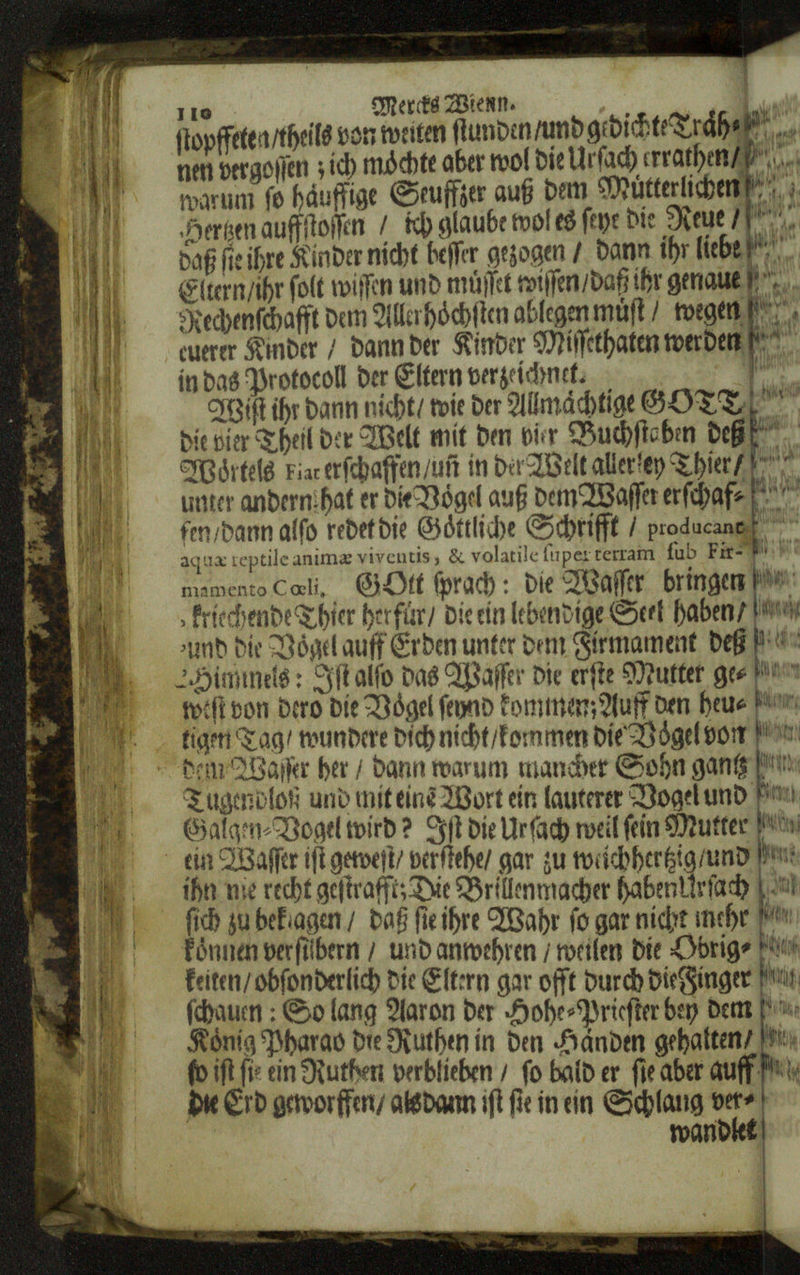 110 Mercks Wienn.
ſtopffeten/theils von weiten ſtunden/und gedichte Träh⸗
nen vergoſſen ; ich möchte aber wol die Urſach errathen/
warum ſo häuffige Seuffzer auß dem Mütterlichen
Hertzen auffſtoſſen / ich glaube wol es ſeye die Reue /
daß ſie ihre Kinder nicht beſſer gezogen / dann ihr liebe
Eltern/ihr ſolt wiſſen und müſſet wiſſen/daß ihr genaue
Rechenſchafft dem Allerhöchſten ablegen müſt / wegen
euerer Kinder / dann der Kinder Miſſethaten werden
in das Protocoll der Eltern verzeichnet.
Wiſt ihr dann nicht/ wie der Allmächtige GOTT
die vier Theil der Welt mit den vier Buchſtaben deß
Wörtels Fiat erſchaffen/uñ in der Welt allerley Thier/
unter andern hat er die Vögel auß dem Waſſer erſchaf⸗
fen/dann alſo redet die Göttliche Schrifft / producant
aquæ reptile animæ viventis, & volatile ſuper terram ſub Fir-
mamento Cœli, GOtt ſprach : die Waſſer bringen
kriechende Thier herfür/ die ein lebendige Seel haben/
und die Vögel auff Erden unter dem Firmament deß
Himmels : Iſt alſo das Waſſer die erſte Mutter ge⸗
weſt von dero die Vögel ſeynd kommen; Auff den heu⸗
tigen Tag/ wundere dich nicht/kommen die Vögel von
dem Waſſer her / dann warum mancher Sohn gantz
Tugendloß und mit einẽ Wort ein lauterer Vogel und
Galgen⸗Vogel wird ? Iſt die Urſach weil ſein Mutter
ein Waſſer iſt geweſt/ verſtehe/ gar zu weichhertzig/und
ihn nie recht geſtrafft; Die Brillenmacher haben Urſach
ſich zu beklagen / daß ſie ihre Wahr ſo gar nicht mehr
können verſilbern / und anwehren / weilen die Obrig⸗
keiten/ obſonderlich die Eltern gar offt durch die Finger
ſchauen : So lang Aaron der Hohe⸗Prieſter bey dem
König Pharao die Ruthen in den Händen gehalten/
ſo iſt ſie ein Ruthen verblieben / ſo bald er ſie aber auff
die Erd geworffen/ alsdann iſt ſie in ein Schlang ver⸗
wandlet